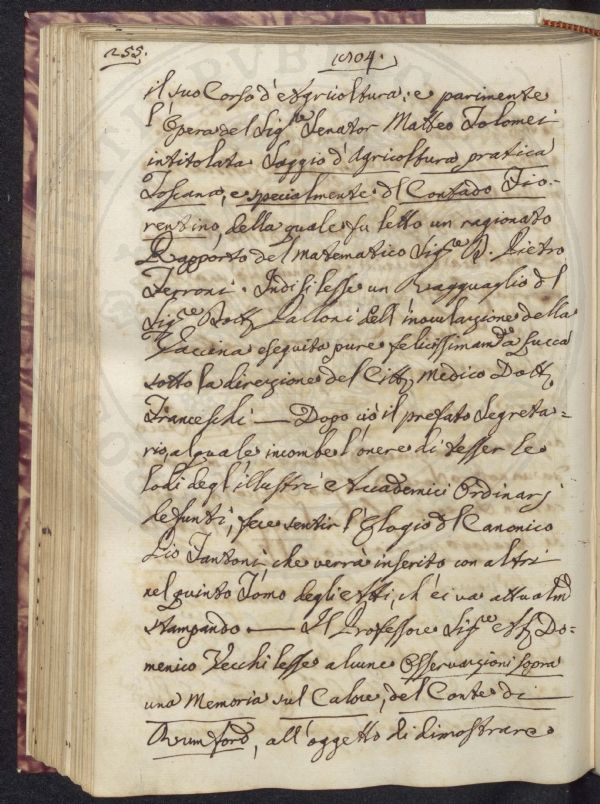 255.
1804.
il suo Corso d'Agricoltura; e parimente
l'Opera del Sig.re Senator Matteo Tolomei
intitolata Saggio d'Agricoltura pratica
Toscana, e specialmente dl Contado Fio-
rentino, della quale fu letto un ragionato
Rapporto del Matematico Sig.re D. Pietro
Ferroni. Indi si lesse un Ragguaglio dl
Sig.re Dott. Palloni dell'inoculazione della
Vaccina eseguita pure felicissimam.te a Lucca
sotto la direzione del Citt. Medico Dott.
Franceschi — Dopo ciò il prefato Segreta=
rio, al quale incombe l'onere di tesser le
lodi degl'illustri Accademici Ordinarj
defunti, fece sentir l'Elogio dl Canonico
Pio Fantoni, che verrà inserito con altri
nel quinto Tomo degli Atti, ch'ei va attualm.
stampando — Il Professore Sig.re Ab. Do=
menico Vecchi lesse alcune Osservazioni sopra
una Memoria sul Calore, del Conte di
Rumford, all'oggetto di dimostrare